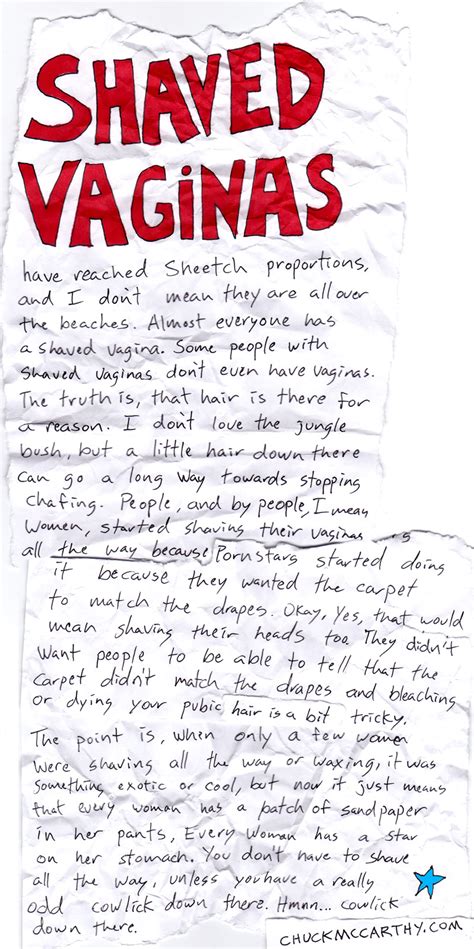 SHAVED
VAGiNAS
have reached Sheetch proportions,
and I don't mean they are all over
the beaches. Almost everyone has
a shaved vagina. Some people with
Shaved vaginas don't even have vaginas.
The truth is, that hair is there for
a reason. I don't love the jungle
bush, but a little hair down there
can go a long way towards stopping
chafing. People, and by people, I mean
women, started shaving their vaginas
all the way because Pornstars started doing
it because they wanted the carpet
to match the drapes. Okay, yes, that would
mean shaving their heads too. They didn't
want people to be able to tell that the
carpet didn't match the drapes and bleaching
or dying your pubic hair is a bit tricky.
The point is, when only a few women
were shaving all the way or waxing, it was
something exotic or cool, but now it just means
that every woman has a patch of sandpaper
in her pants, Every woman has a star
on her stomach. You don't have to shave
all the way, unless you have a really
odd cowlick down there. Hmnn... cowlick
down there.
CHUCKMCCARTHY.COM